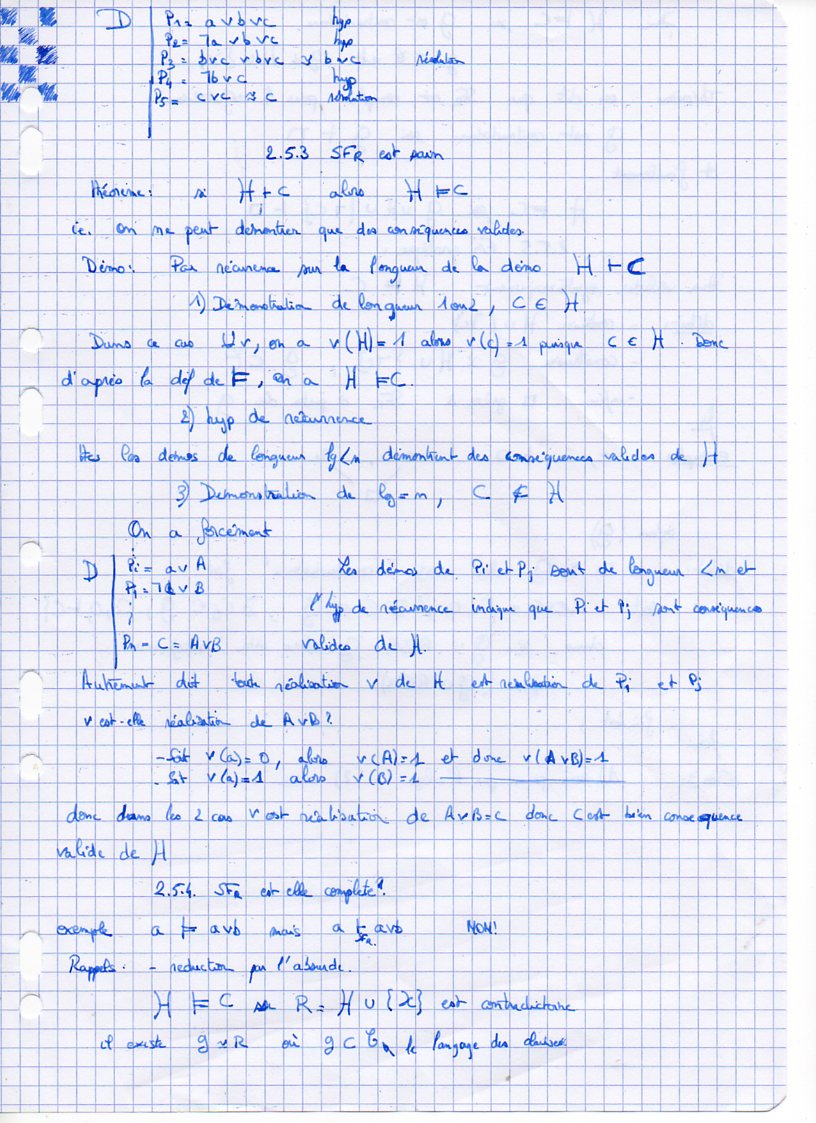 D P1= a ∨ b ∨ c hyp
P2= ¬a ∨ b ∨ c hyp
P3= b∨c ∨ b∨c ≈ b∨c résolution
P4= ¬b ∨ c hyp
P5= c∨c ≈ c résolution
2.5.3 SFR est sain
Théorème: si H ⊢ C alors H ⊨ C
ie. On ne peut démontrer que des conséquences valides
Démo: Par récurence sur la longueur de la démo H ⊢ C
1) Démonstration de longueur 1 ou 2, C ∈ H
Dans ce cas ∀v, on a v(H)=1 alors v(C)=1 puisque C ∈ H. Donc
d'après la déf de ⊨, on a H ⊨ C.
2) hyp de récurrence
les démos de longueur lg<n démontrent des conséquences valides de H
3) Démonstration de lg=n, C ∉ H
On a forcément
D Pi = a∨A Les démos de Pi et Pj sont de longueur <n et
Pj = ¬a ∨ B
l'hyp de récurrence indique que Pi et Pj sont conséquences
Pn = C = A∨B valides de H.
Autrement dit toute réalisation v de H est réalisation de Pi et Pj
v est-elle réalisation de A∨B?
- Soit v(a)=0, alors v(A)=1 et donc v(A∨B)=1
- Soit v(a)=1 alors v(B)=1
donc dans les 2 cas v est réalisation de A∨B=C donc C est bien consequence
valide de H
2.5.4. SFR est elle complète?
exemple a ⊨ a∨b mais a ⊢SFR a∨b NON!
Rappels. - reduction par l'absurde.
H ⊨ C R = H ∪ {} est contradictoire
il existe G ≈ R où G ⊂ le langage des clauses